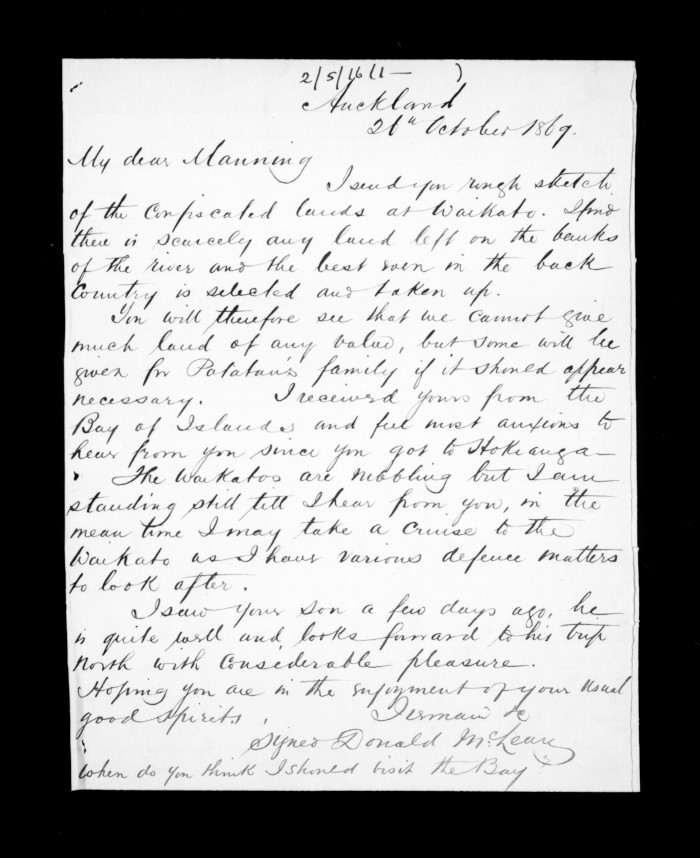 2/5/16(1— )
Auckland
26th October 1869.
My dear Manning
I send you rough sketch
of the Confiscated lands at Waikato. I find
there is scarcely any land left on the banks
of the river and the best even in the back
Country is selected and taken up.
You will therefore see that we cannot give
much land of any value, but some will be
given for Patatau's family if it should appear
necessary. I received yours from the
Bay of Islands and feel most anxious to
hear from you since you got to Hokianga—
The Waikatos are nobbling but I am
standing still till I hear from you, in the
mean time I may take a Cruise to the
Waikato as I have various defence matters
to look after.
I saw your son a few days ago, he
is quite well and looks forward to his trip
North with Considerable pleasure.
Hoping you are in the enjoyment of your usual
good spirits, I remain &c
Signed Donald McLean
When do you think I should visit the Bay?